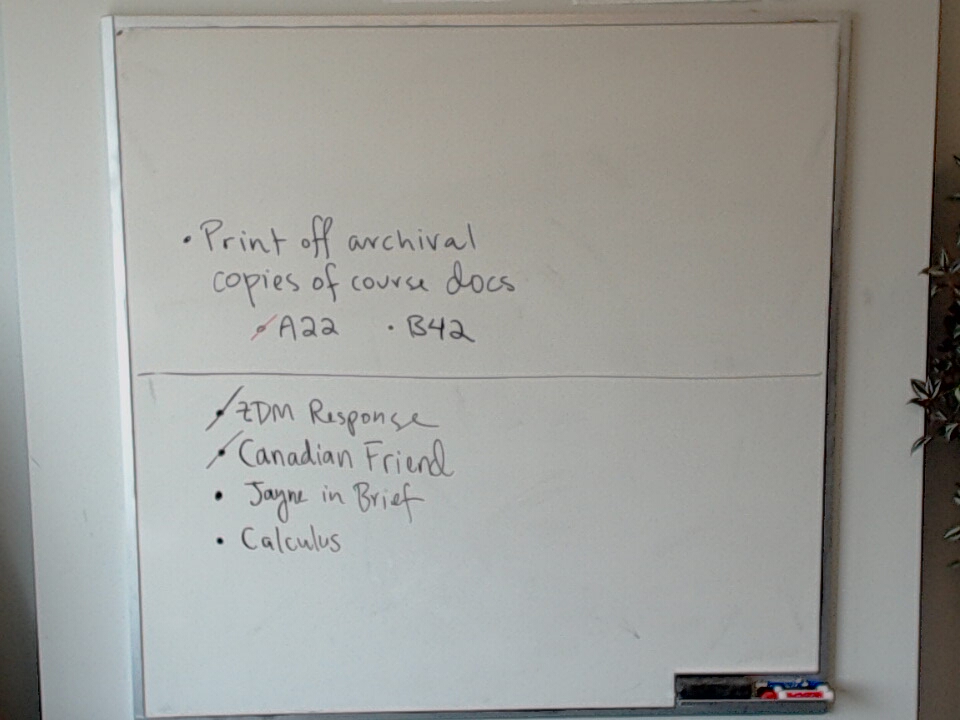 • Print off archival
copies of course docs
• A22 • B42
• ZDM Response
• Canadian Friend
• Jayne in Brief
• Calculus